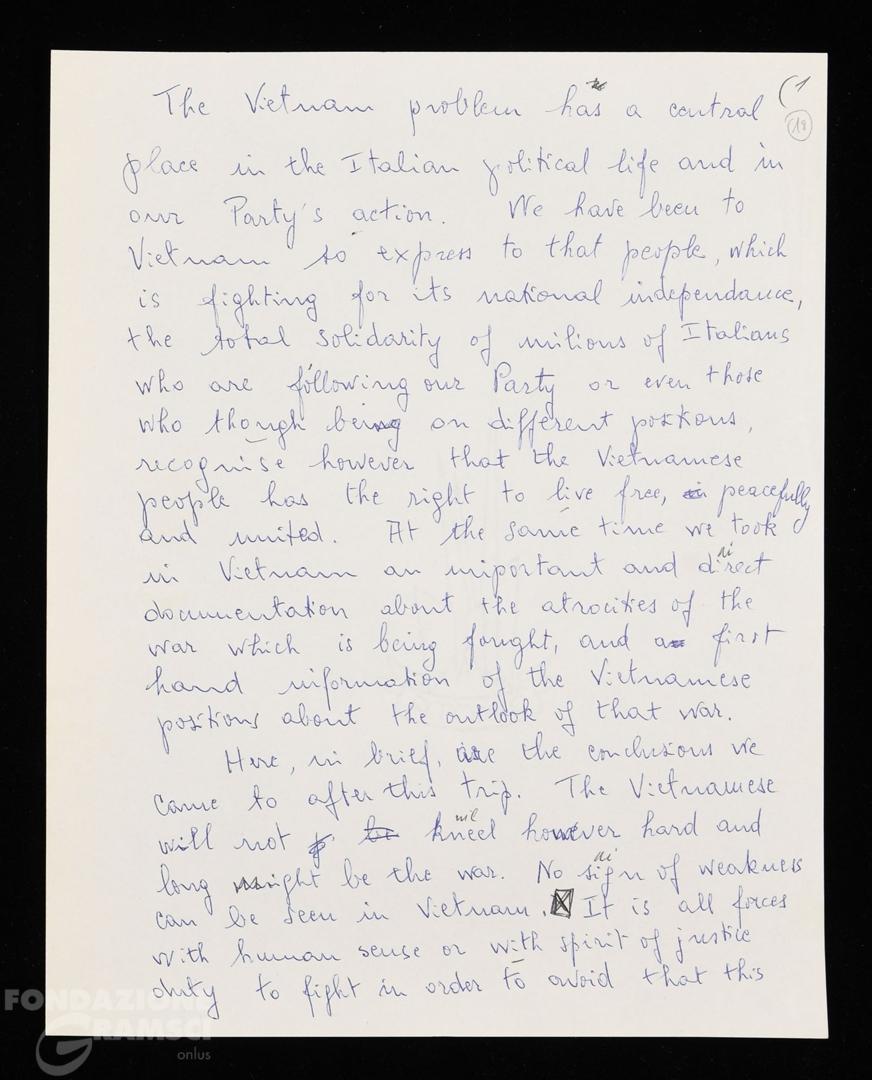 (1
18
The Vietnam problem has a central
place in the Italian political life and in
our Party's action. We have been to
Vietnam to express to that people, which
is fighting for its national independance,
the total solidarity of milions of Italians
who are following our Party or even those
who though being on different positions,
recognise however that the Vietnamese
people has the right to live free, peacefully
and united. At the same time we took
in Vietnam an important and direct
documentation about the atrocities of the
war which is being fought, and a first
hand information of the Vietnamese
positions about the outlook of that war.
Here, in brief, are the conclusions we
came to after this trip. The Vietnamese
will not kneel however hard and
long might be the war. No sign of weakness
can be seen in Vietnam. It is all forces
with human sense or with spirit of justice
duty to fight in order to avoid that this
FONDAZIONE
GRAMSCI
onlus